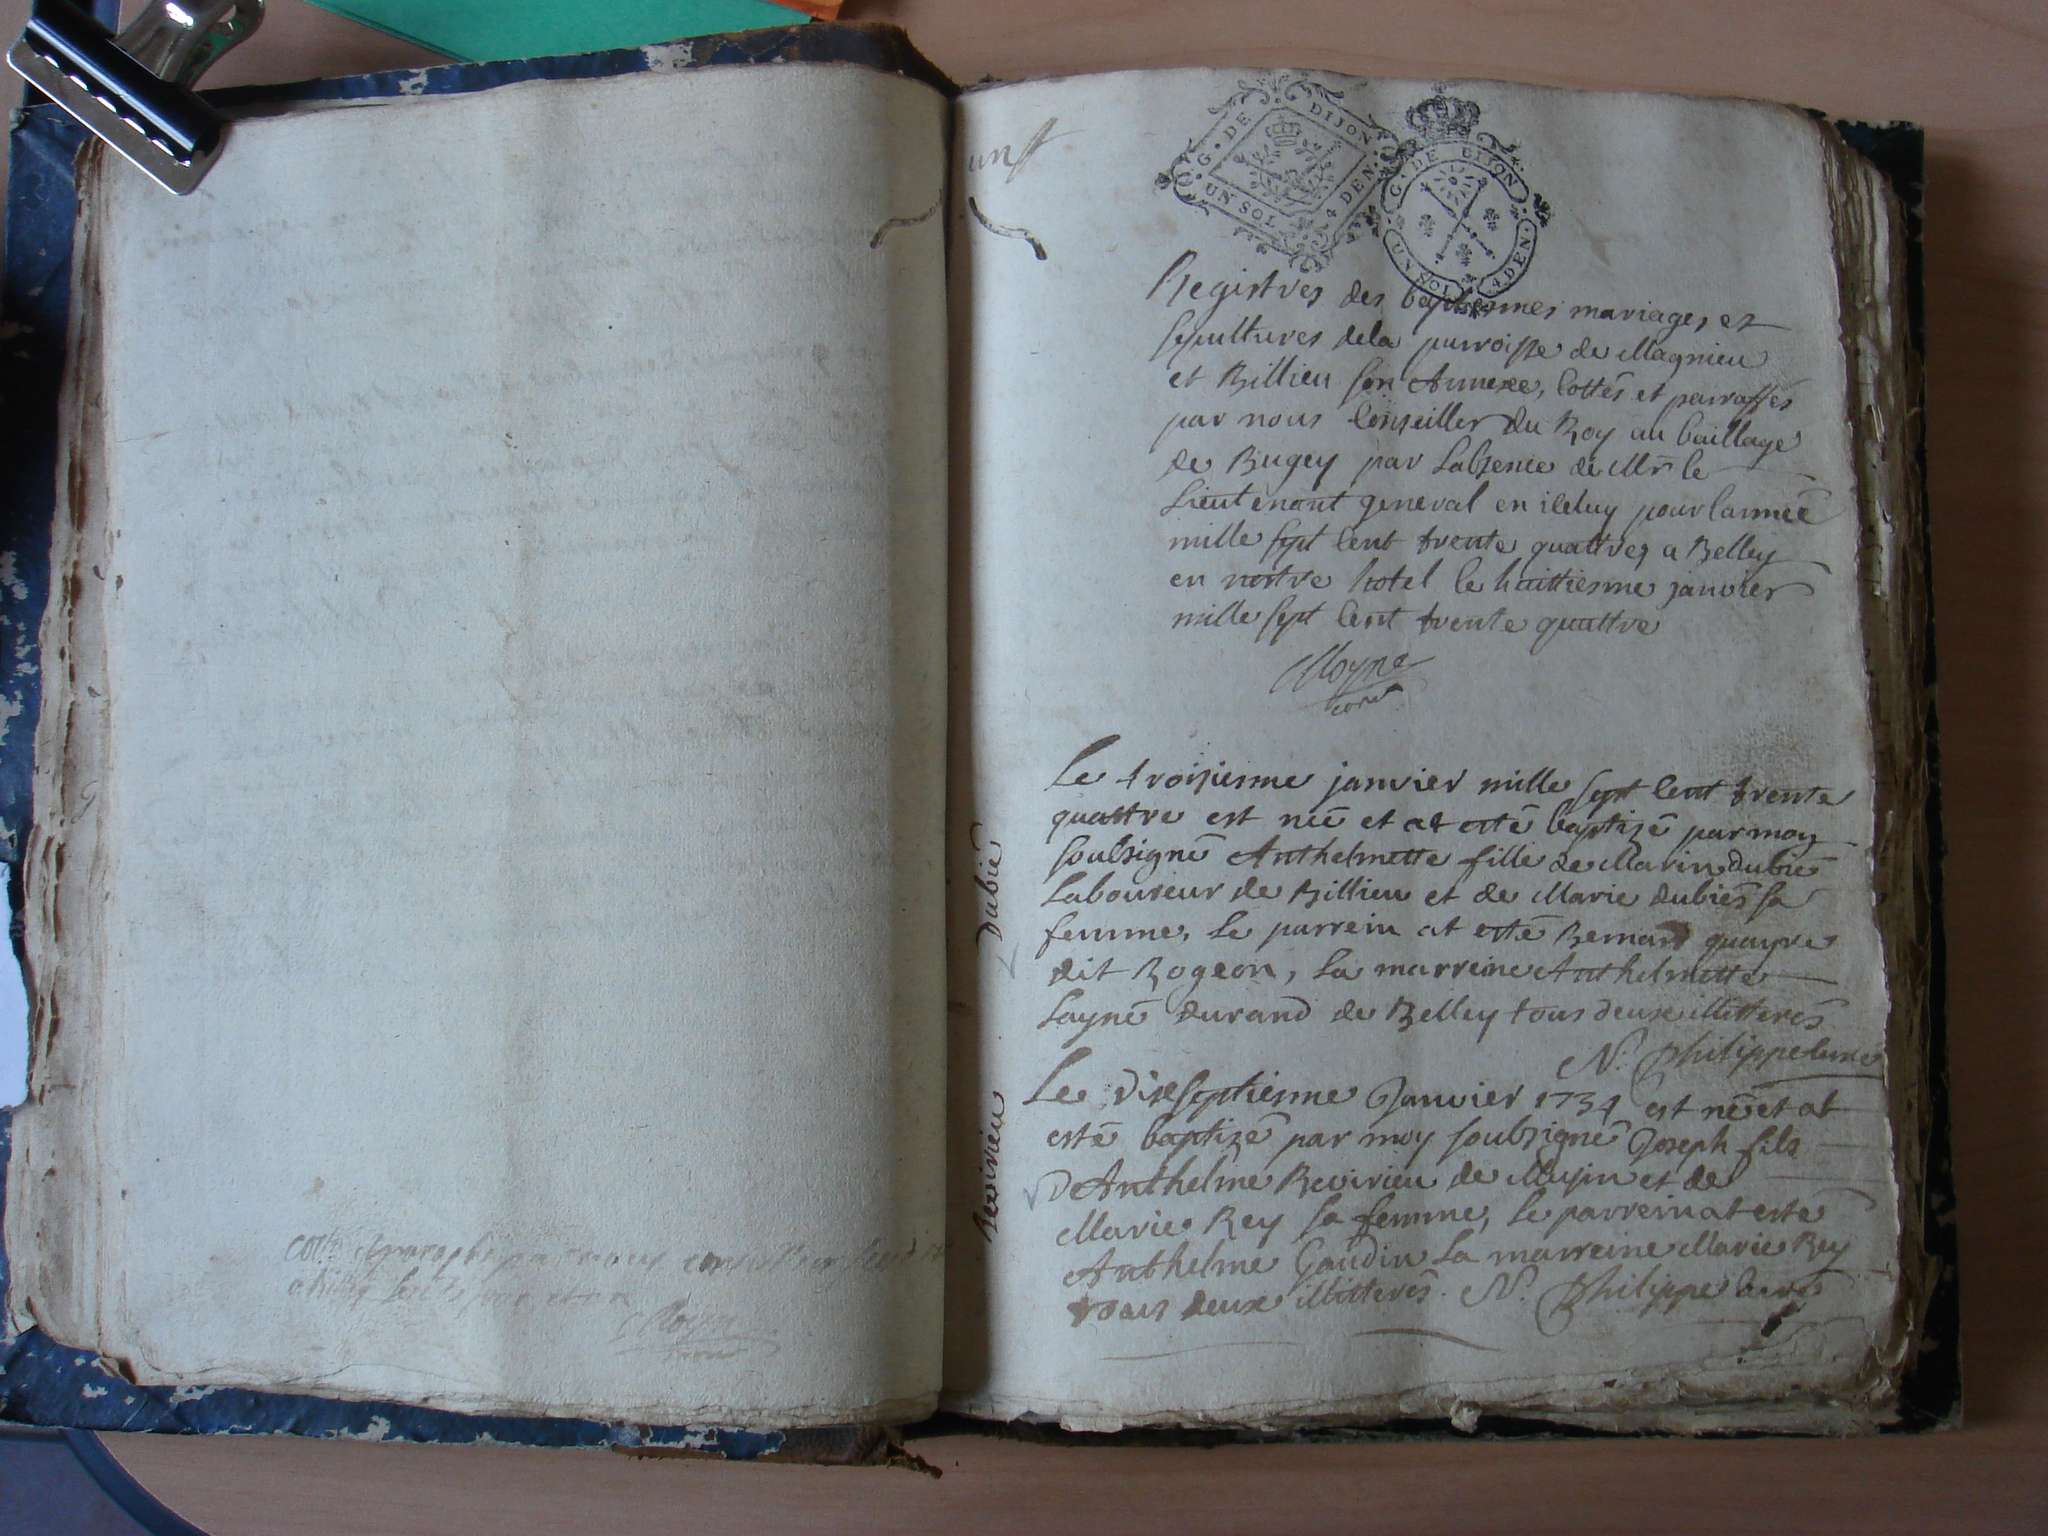 G. DE DIJON
UN SOL 4 DEN.
G. DE DIJON
UN SOL 4 DEN.
Registres des baptesmes mariages et
sepultures dela parroisse de Magnieu
et Billieu son Annexe, cottés et parraffés
par nous Conseiller du Roy au baillage
de Bugey par Labsence de Mr le
Lieutenant general en iceluy pour lannéé
mille sept cent trente quattre, a Belley
en nostre hotel le huittiesme janvier
mille sept cent trente quattre
Moyne
Dubié
Le troisiesme janvier mille sept cent trente
quattre est néé et at esté baptizé par moy
soubsigné Anthelmette fille de Marin dubié
Laboureur de Billieu et de Marie dubiés sa
femme, Le parrein at esté Bernard quayre
dit Rogeon, La marreine Anthelmette
Layné durand de Belley tous deux illitterés
N. Philippe curé
Revirieu
Le dixseptiesme Janvier 1734 est né et at
esté baptizé par moy soubsigné Joseph fils
D'Anthelme Revirieu de Musin et de
Marie Rey sa femme, Le parrein at esté
Anthelme Gaudin La marreine Marie Rey
tous deux illitterés. N. Philippe curé